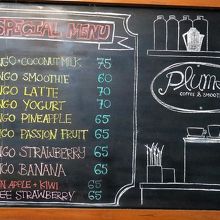 SPECIAL MENU
NGO + COCONUT MILK 75
NGO SMOOTHIE 60
NGO LATTE 70
NGO YOGURT 70
NGO PINEAPPLE 65
NGO PASSION FRUIT 65
NGO STRAWBERRY 65
NGO BANANA 65
N APPLE + KIWI 65
EE STRAWBERRY 65
Plum
COFFEE & SMOOT